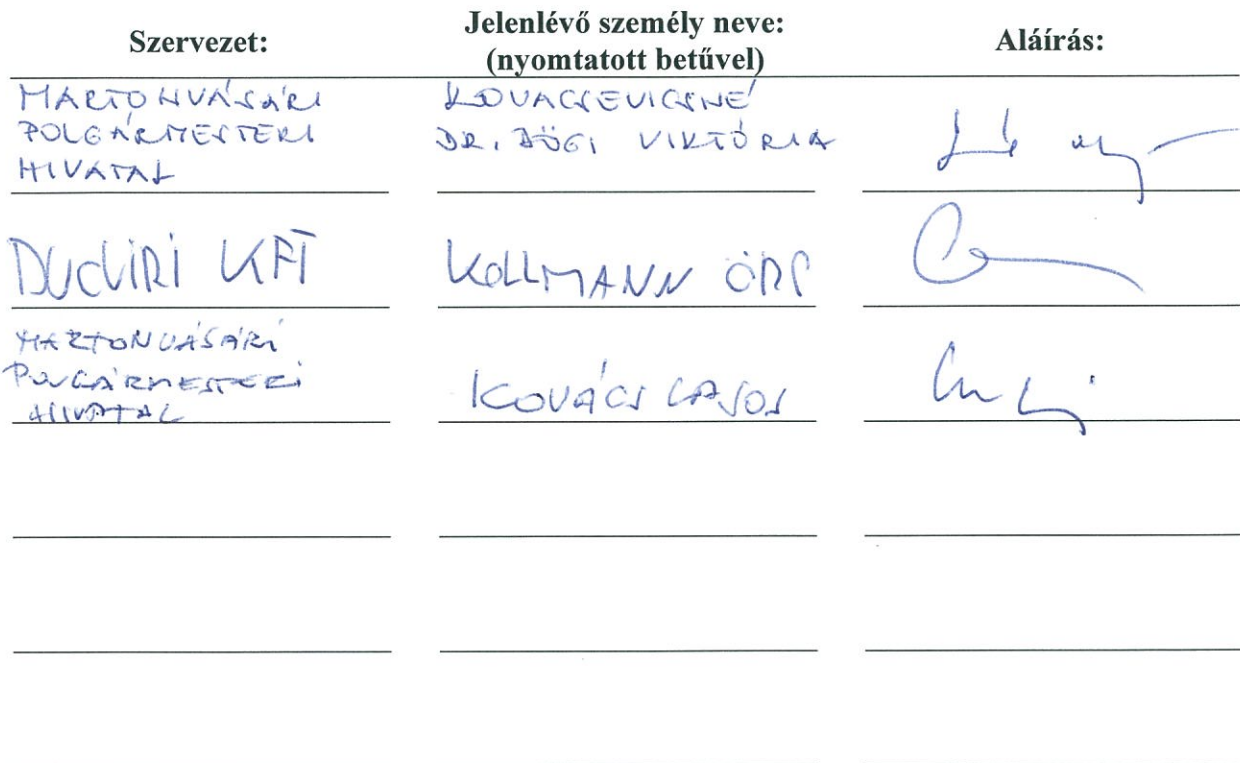 Szervezet:
Jelenlévő személy neve:
(nyomtatott betűvel)
Aláírás:
MARTONVÁSÁRI
POLGÁRMESTERI
HIVATAL
KOVACSEVICSNÉ
DR. BÖGI VIKTÓRIA
KFT
KOLLMANN ÖRS
MARTONVÁSÁRI
POLGÁRMESTERI
HIVATAL
KOVÁCS LAJOS